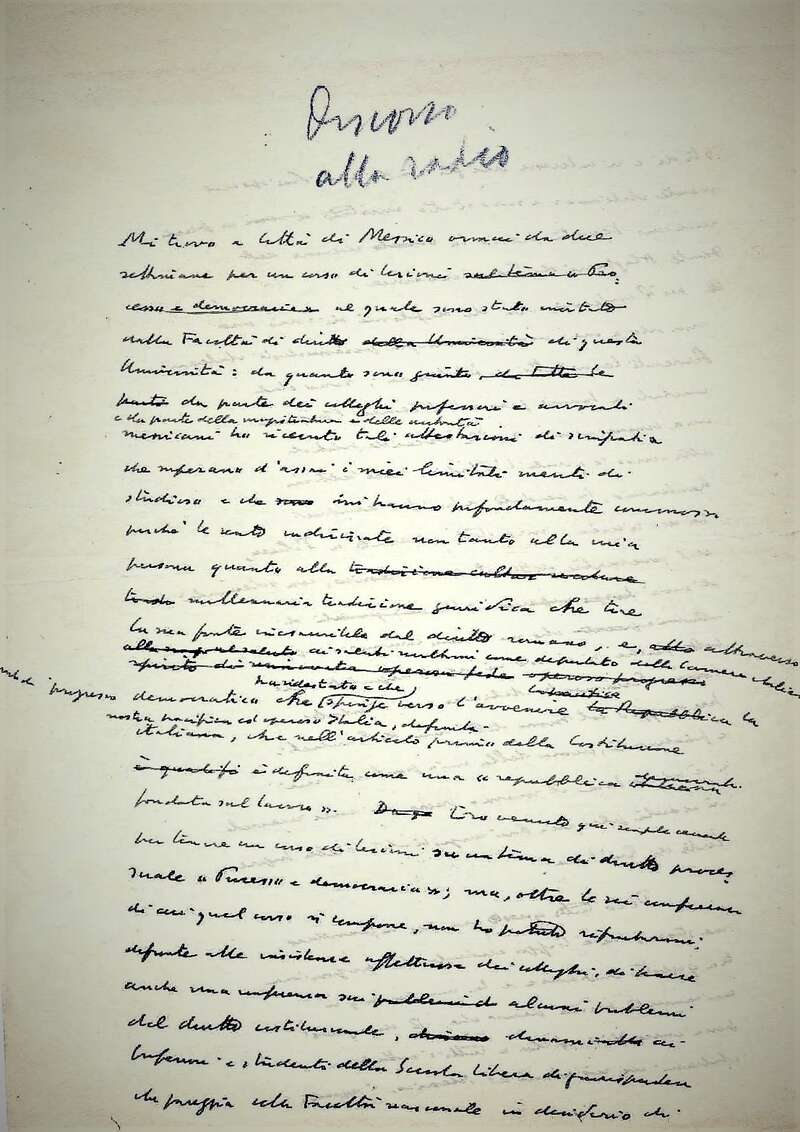 Discorso
alla radio
Mi trovo a Città di Messico ormai da due
settimane per un corso di lezioni sul tema « Pro-
cesso e democrazia » al quale sono stato invitato
dalla Facoltà di diritto della Università di questa
Università: da quanto sono giunto, da tutte le
parti da parte dei colleghi professori e avvocati
e da parte della magistratura e delle autorità
messicani ho ricevuto tali attestazioni di simpatia
che superano d'assai i miei limitati meriti di
studioso e che sono mi hanno profondamente commosso
perché le sento indirizzate non tanto alla mia
persona quanto alla tradizione
millenaria tradizione giuridica che tiene
la sua fonte inesauribile dal diritto romano, e, attraverso
ai saluti come deputato della Camera italiana
spirito di rinnovata operosa fede operoso progresso
ha ridestato e che
progresso democratico che spinge verso l'avvenire la Repubblica la
nostra pacifica ed operosa Italia, definita
italiana, che nell'articolo primo della Costituzione
è qualifi è definita come una « repubblica democratica
fondata sul lavoro ». Ero venuto qui semplicemente
per tenere un corso di lezioni su un tema di diritto proces-
suale « Processo e democrazia »; ma, oltre le sei conferenze
di cui quel corso si compone, non ho potuto rifiutarmi,
di fronte alle insistenze affettuose dei colleghi, di tenere
anche una conferenza sui problemi d alcuni problemi
del diritto costituzionale, dinanzi ai
professori e studenti della Scuola libera di giurisprudenza
che pareggia alla Facoltà nazionale in desiderio di